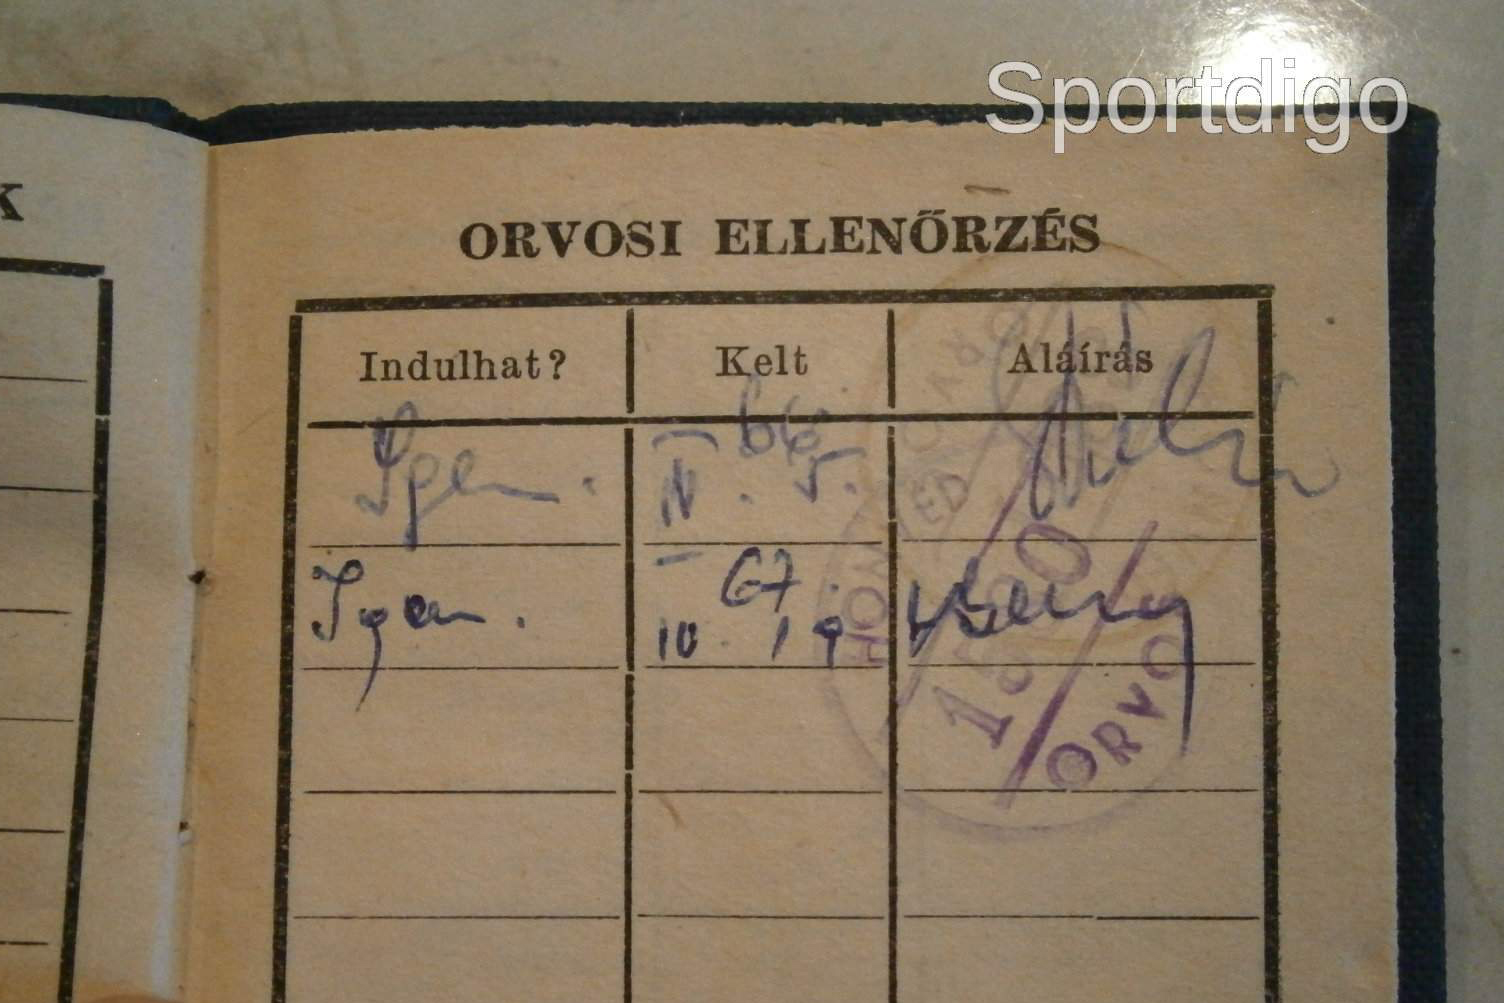 Sportdigo
K
ORVOSI ELLENŐRZÉS
Indulhat? Kelt Aláírás
Igen. 66. IV. 5.
Igen. 67. IV. 19
HONVÉD
ORVO